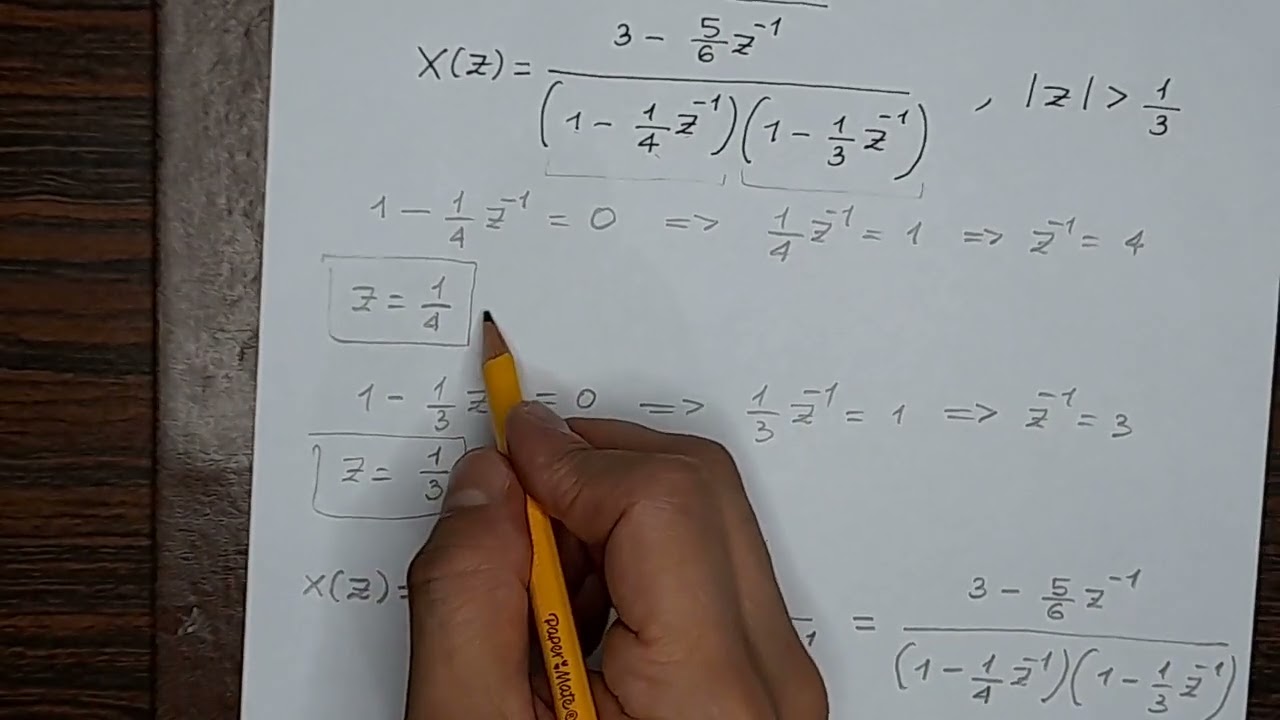 X(z) = (3 - 5/6 z^-1) / ((1 - 1/4 z^-1)(1 - 1/3 z^-1)) , |z| > 1/3
1 - 1/4 z^-1 = 0 => 1/4 z^-1 = 1 => z^-1 = 4
z = 1/4
1 - 1/3 z = 0 => 1/3 z^-1 = 1 => z^-1 = 3
z = 1/3
X(z) = = (3 - 5/6 z^-1) / ((1 - 1/4 z^-1)(1 - 1/3 z^-1))
Paper Mate